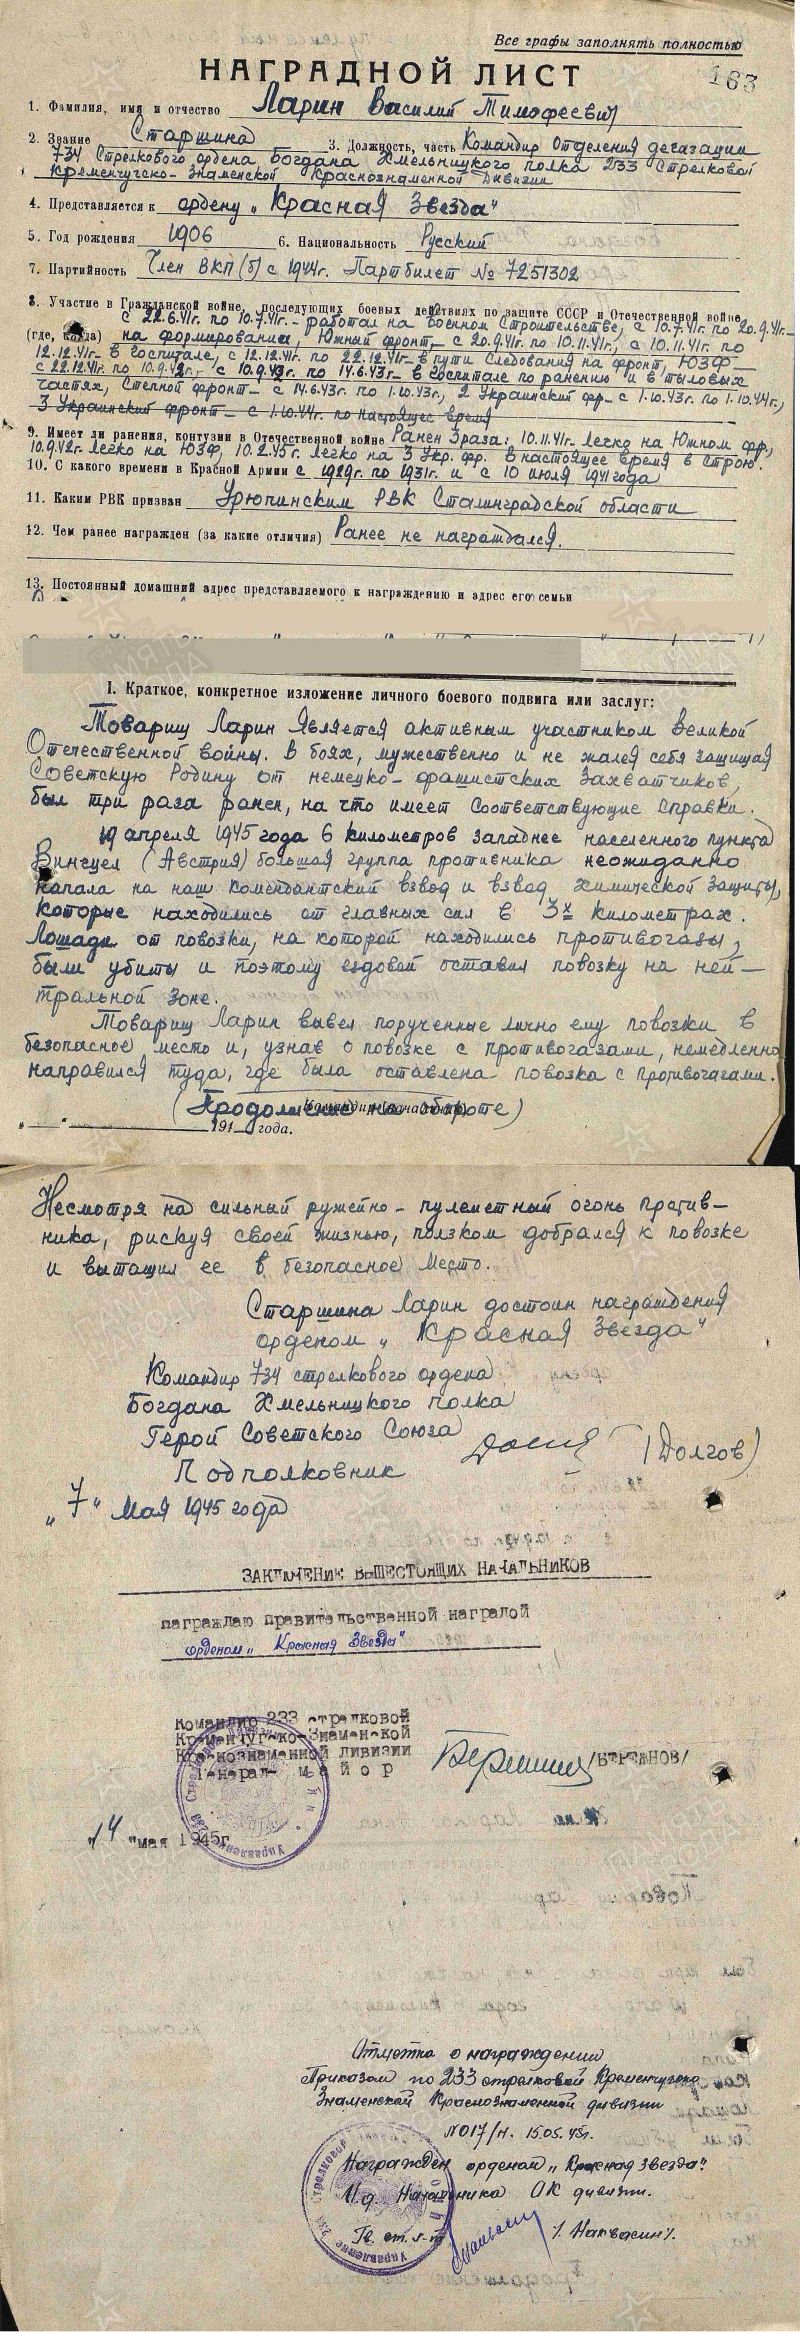 Все графы заполнять полностью
НАГРАДНОЙ ЛИСТ
163
1. Фамилия, имя и отчество Ларин Василий Тимофеевич
2. Звание Старшина 3. Должность, часть Командир Отделения дегазации
734 Стрелкового ордена Богдана Хмельницкого полка 233 Стрелковой
Кременчугско-Знаменской Краснознаменной Дивизии
4. Представляется к ордену „Красная Звезда"
5. Год рождения 1906 6. Национальность Русский
7. Партийность Член ВКП(б) с 1944г. Партбилет № 7251302
8. Участие в Гражданской войне, последующих боевых действиях по защите СССР и Отечественной войне
с 22.6.41г. по 10.7.41г. – работал на военном Строительстве, с 10.7.41г. по 20.9.41г –
(где, когда) на формировании, Южный фронт – с 20.9.41г. по 10.11.41г., с 10.11.41г. по
12.12.41г – в госпитале, с 12.12.41г. по 22.12.41г – в пути следования на фронт, ЮЗФ –
с 22.12.41г. по 10.9.42г., с 10.9.42г. по 14.6.43г – в госпитале по ранению и в тыловых
частях, Степной фронт – с 14.6.43г. по 1.10.43г., 2 Украинский фр – с 1.10.43г. по 1.10.44г.,
3 Украинский фронт – с 1.10.44г. по настоящее время
9. Имеет ли ранения, контузии в Отечественной войне Ранен 3 раза: 10.11.41г – легко на Южном фр.,
10.9.42г. легко на ЮЗФ, 10.2.45г. легко на 3 Укр. фр. В настоящее время в строю.
10. С какого времени в Красной Армии с 1929г. по 1931г. и с 10 июля 1941 года
11. Каким РВК призван Урюпинским РВК Сталинградской области
12. Чем ранее награжден (за какие отличия) Ранее не награждался.
13. Постоянный домашний адрес представляемого к награждению и адрес его семьи
I. Краткое, конкретное изложение личного боевого подвига или заслуг:
Товарищ Ларин является активным участником Великой
Отечественной войны. В боях, мужественно и не жалея себя защищая
Советскую Родину от немецко-фашистских захватчиков,
был три раза ранен, на что имеет соответствующие справки.
19 апреля 1945 года 6 километров западнее населенного пункта
Винццел (Австрия) большая группа противника неожиданно
напала на наш комендантский взвод и взвод химической защиты,
которые находились от главных сил в 3х километрах.
Лошади от повозки, на которой находились противогазы,
были убиты и поэтому ездовой оставил повозку на ней-
тральной зоне.
Товарищ Ларин вывел порученные лично ему повозки в
безопасное место и, узнав о повозке с противогазами, немедленно
направился туда, где была оставлена повозка с противогазами.
(Продолжение на обороте)
„ " 191 года.
Несмотря на сильный ружейно-пулеметный огонь против-
ника, рискуя своей жизнью, ползком добрался к повозке
и вытащил ее в безопасное место.
Старшина Ларин достоин награждения
орденом „Красная Звезда"
Командир 734 стрелкового ордена
Богдана Хмельницкого полка
Герой Советского Союза
Подполковник (Долгов)
„7" Мая 1945 года
ЗАКЛЮЧЕНИЕ ВЫШЕСТОЯЩИХ НАЧАЛЬНИКОВ
награждаю правительственной наградой
орденом „Красная Звезда"
Командир 233 стрелковой
Кременчугско-Знаменской
Краснознаменной дивизии
Генерал-майор /БЕРЕЖНОВ/
„14" мая 1945г.
Отметка о награждении
Приказом по 233 стрелковой Кременчугско
Знаменской Краснознаменной дивизии
№ 017/н. 15.05.45г.
Награжден орденом „Красная Звезда".
И.д. Начальника ОК дивизии.
Гв. ст. л-т /. Наквасин/.